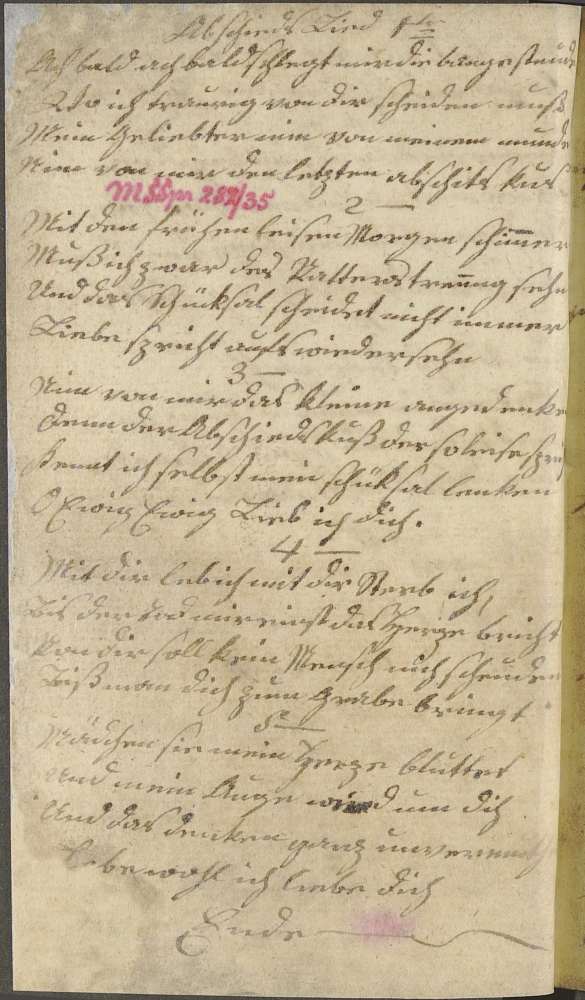 Abschieds Lied
Ach bald ach bald schlegt mir die bange stunde
Wo ich traurig von dir scheiden muß
Mein Geliebter nim von meinem munde
Nim von mir den letzten abschits kus
MSSpr 282/35
2
Mit den frühen leisen Morgen schimer
Muß ich zwar des Vatters trennung sehn
Und das schüksal scheidet nicht immer
Liebe spricht aufs wiedersehn
3
Nim von mir das kleine angedenken
Denn der Abschieds Kuß der so leise
Kennt ich selbst mein schüksal lenken
O Ewig Ewig Lieb ich dich.
4
Mit dir leb ich mit dir Sterb ich,
Bis der Tod mir einst das Herze bricht
Von dir soll kein Mensch mich scheuden
Biß man dich zum Grabe bringt
5
Mädchen sie mein Herze bluttet
und mein Auge um dich
Und das denken ganz
Lebe wohl ich liebe dich
Ende